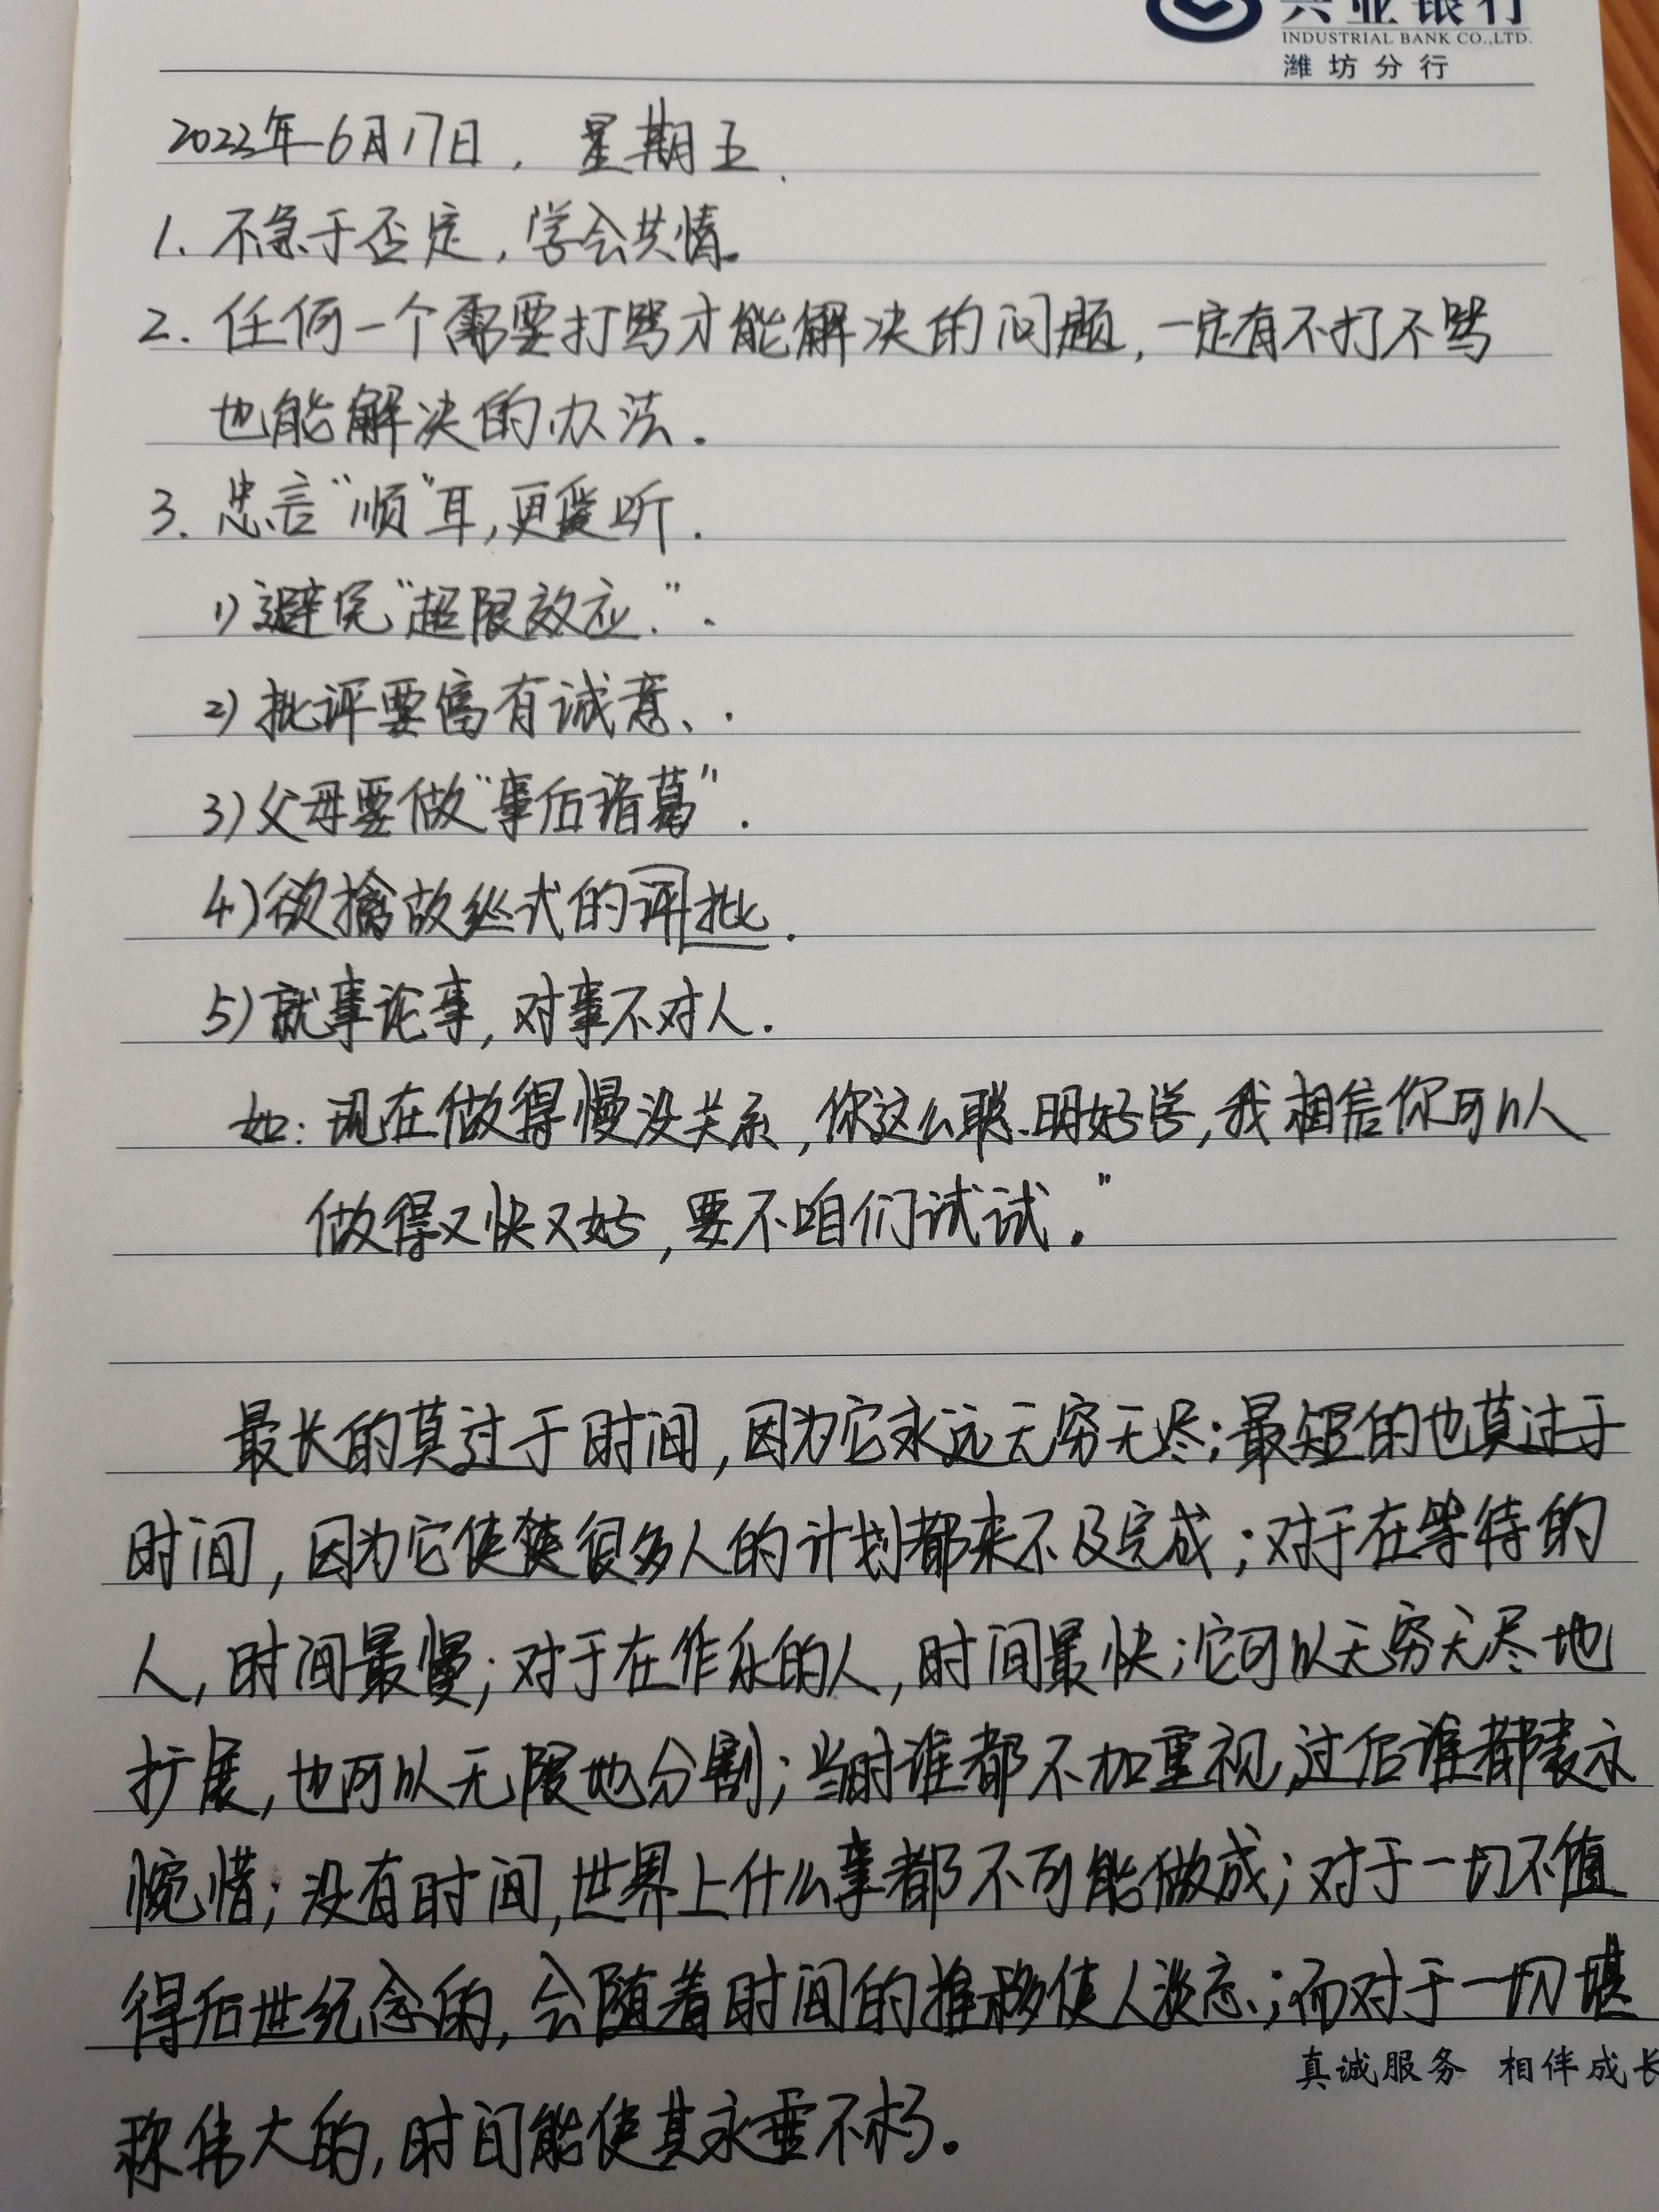 兴业银行
INDUSTRIAL BANK CO.,LTD.
潍坊分行
2022年6月17日，星期五.
1. 不急于否定，学会共情。
2. 任何一个需要打骂才能解决的问题，一定有不打不骂
也能解决的办法.
3. 忠言“顺”耳，更爱听.
1) 避免“超限效应.”.
2) 批评要富有诚意、.
3) 父母要做“事后诸葛”.
4) 欲擒故纵式的评批.
5) 就事论事，对事不对人.
如：现在做得慢没关系，你这么聪明好学，我相信你可以人
做得又快又好，要不咱们试试。”
最长的莫过于时间，因为它永远无穷无尽；最短的也莫过于
时间，因为它使使很多人的计划都来不及完成；对于在等待的
人，时间最慢；对于在作乐的人，时间最快；它可以无穷无尽地
扩展，也可以无限地分割；当时谁都不加重视，过后谁都表示
惋惜；没有时间，世界上什么事都不可能做成；对于一切不值
得后世纪念的，会随着时间的推移使人淡忘；而对于一切堪
称伟大的，时间能使其永垂不朽。
真诚服务 相伴成长